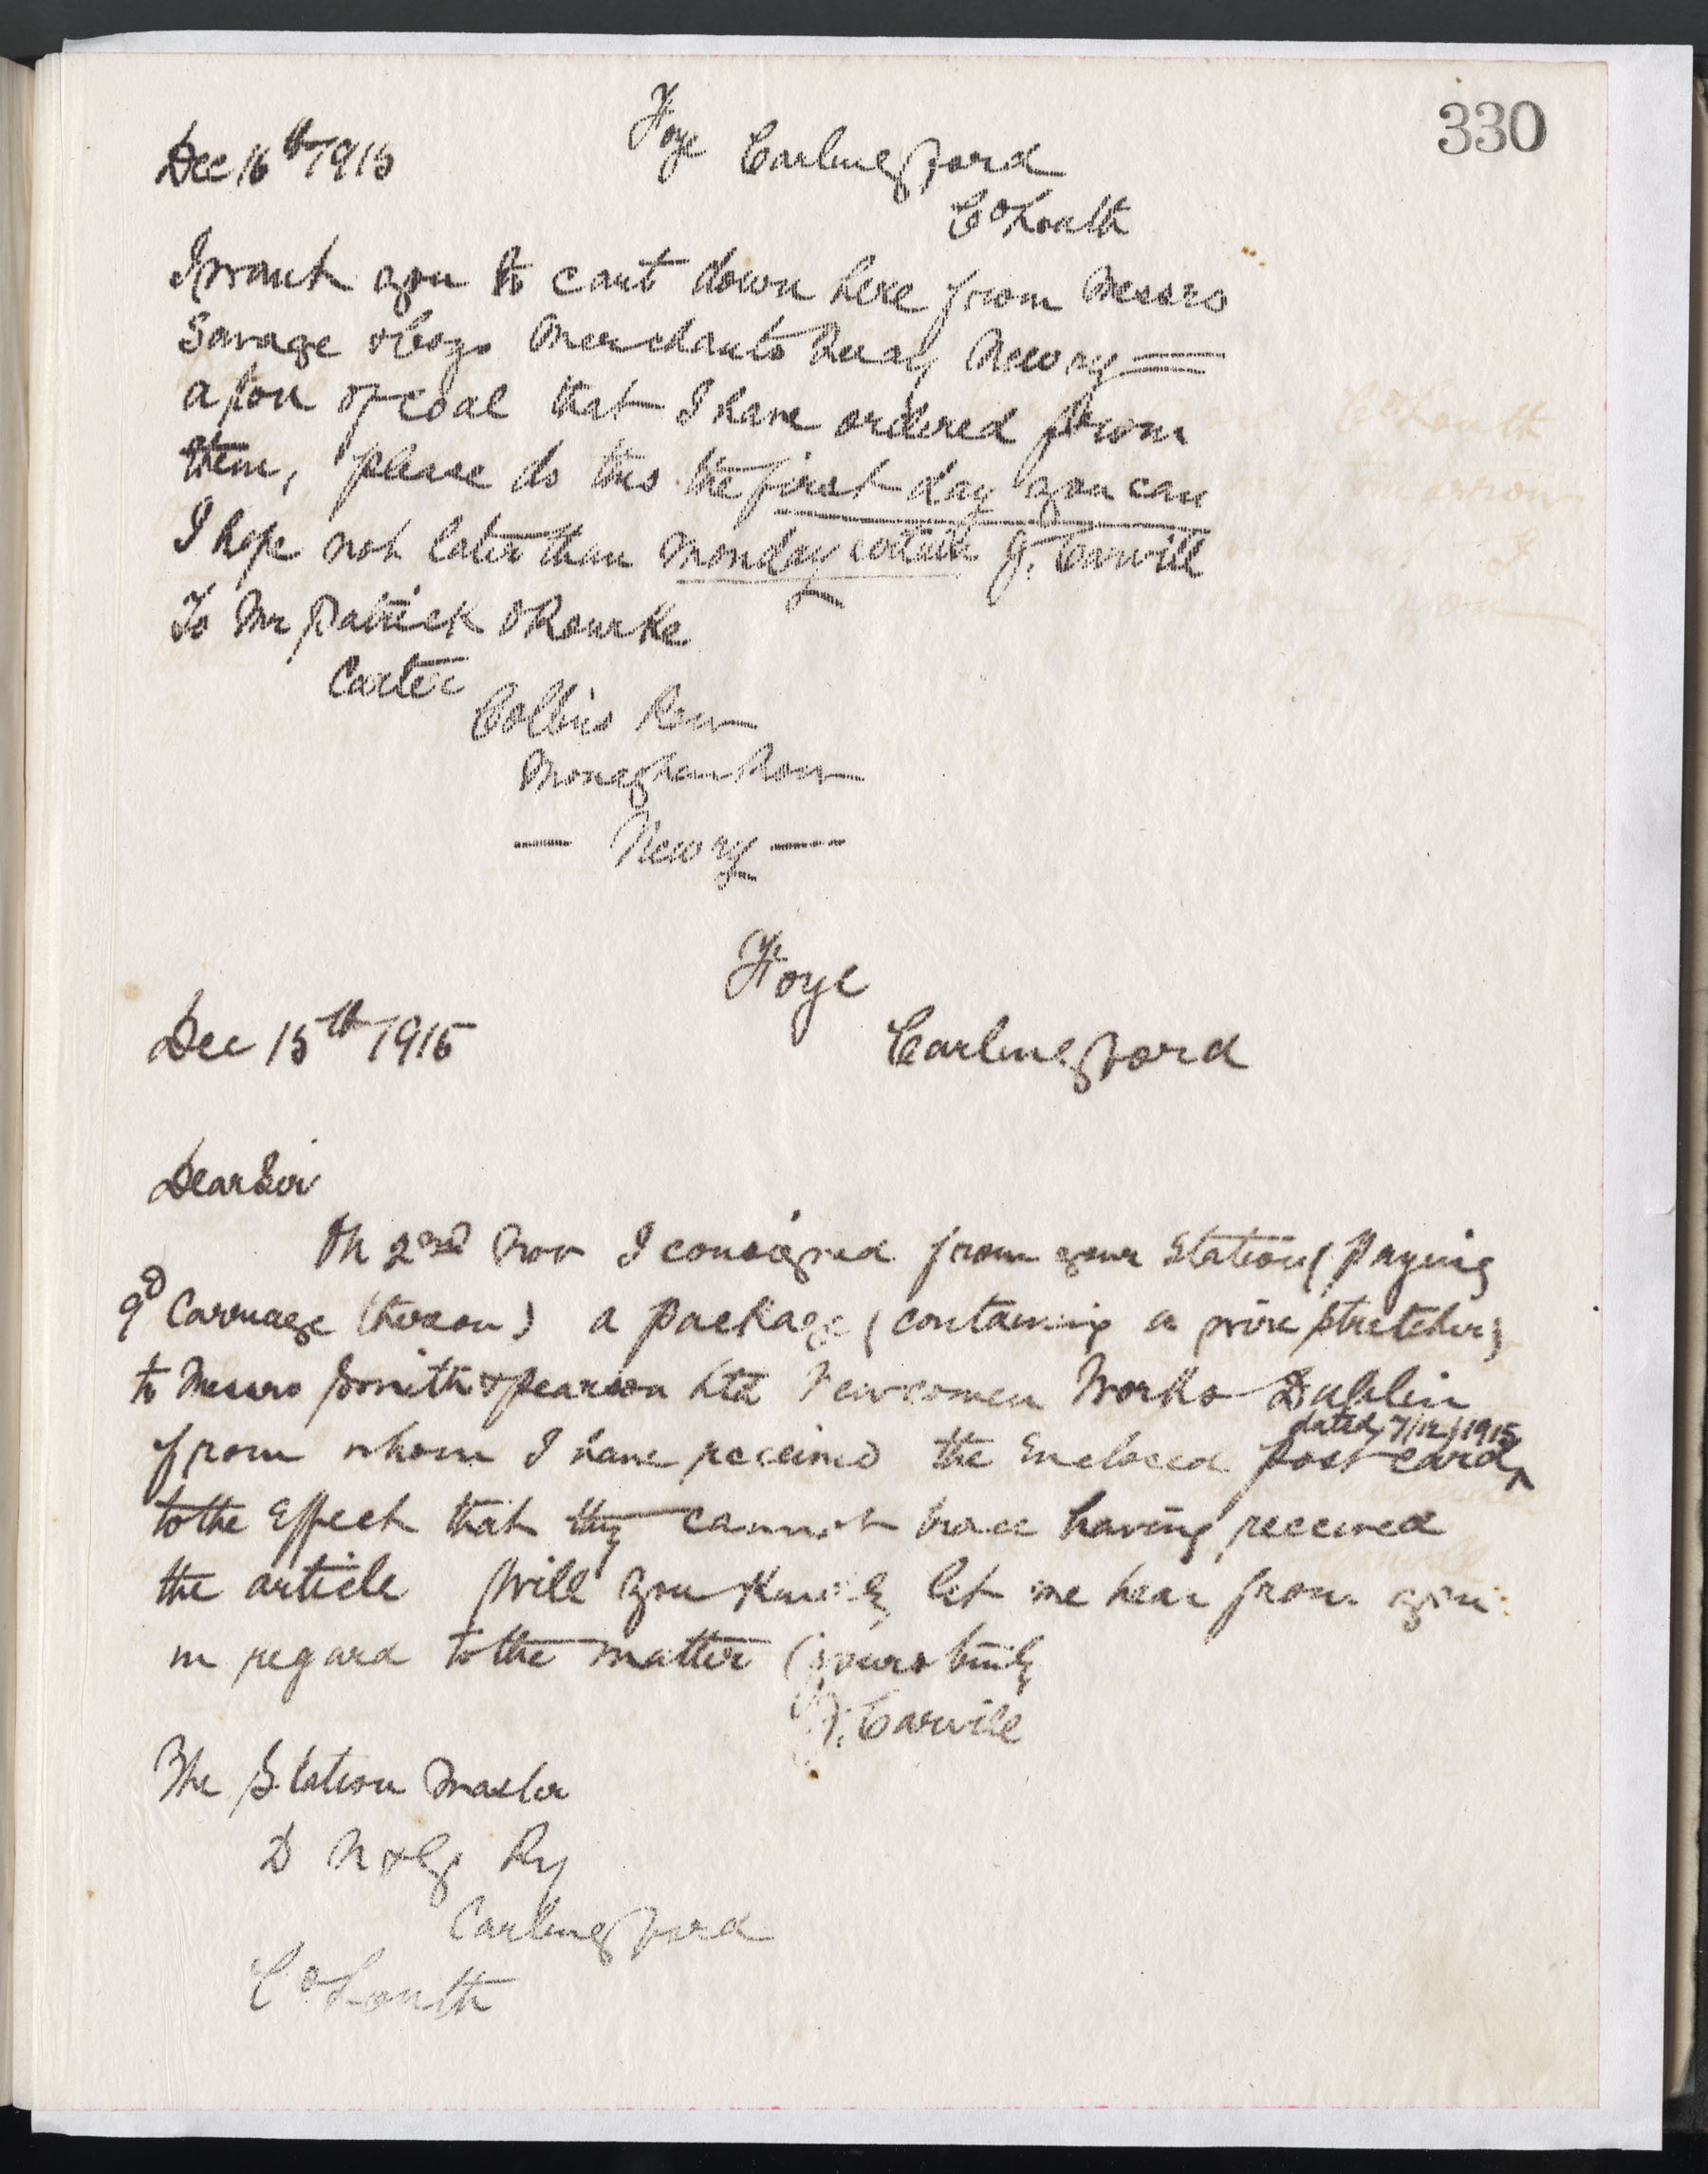 330
Dec 16th 1915 Foye Carlingford
Co Louth
I want you to cart down here from Messrs
Savage & Coys Merchants Quay Newry
a ton of coal that I have ordered from
them, please do this the first day you can
I hope not later than Monday J. Carvill
To Mr Patrick O Rourke
Carter
Collins Row
Monaghan Row
— Newry —
Foye
Dec 15th 1915 Carlingford
Dear Sir
On 2nd Nov I consigned from your Station (paying
9d Carriage thereon) a package (containing a wire stretcher)
to Messrs Smith & Pearson Ltd Newcomen Works Dublin
from whom I have received the Enclosed post card dated 7/12/1915
to the Effect that they cannot trace having received
the article Will you kindly let me hear from you
in regard to the matter yours truly
J. Carvill
The Station Master
D N & G Ry
Carlingford
Co Louth